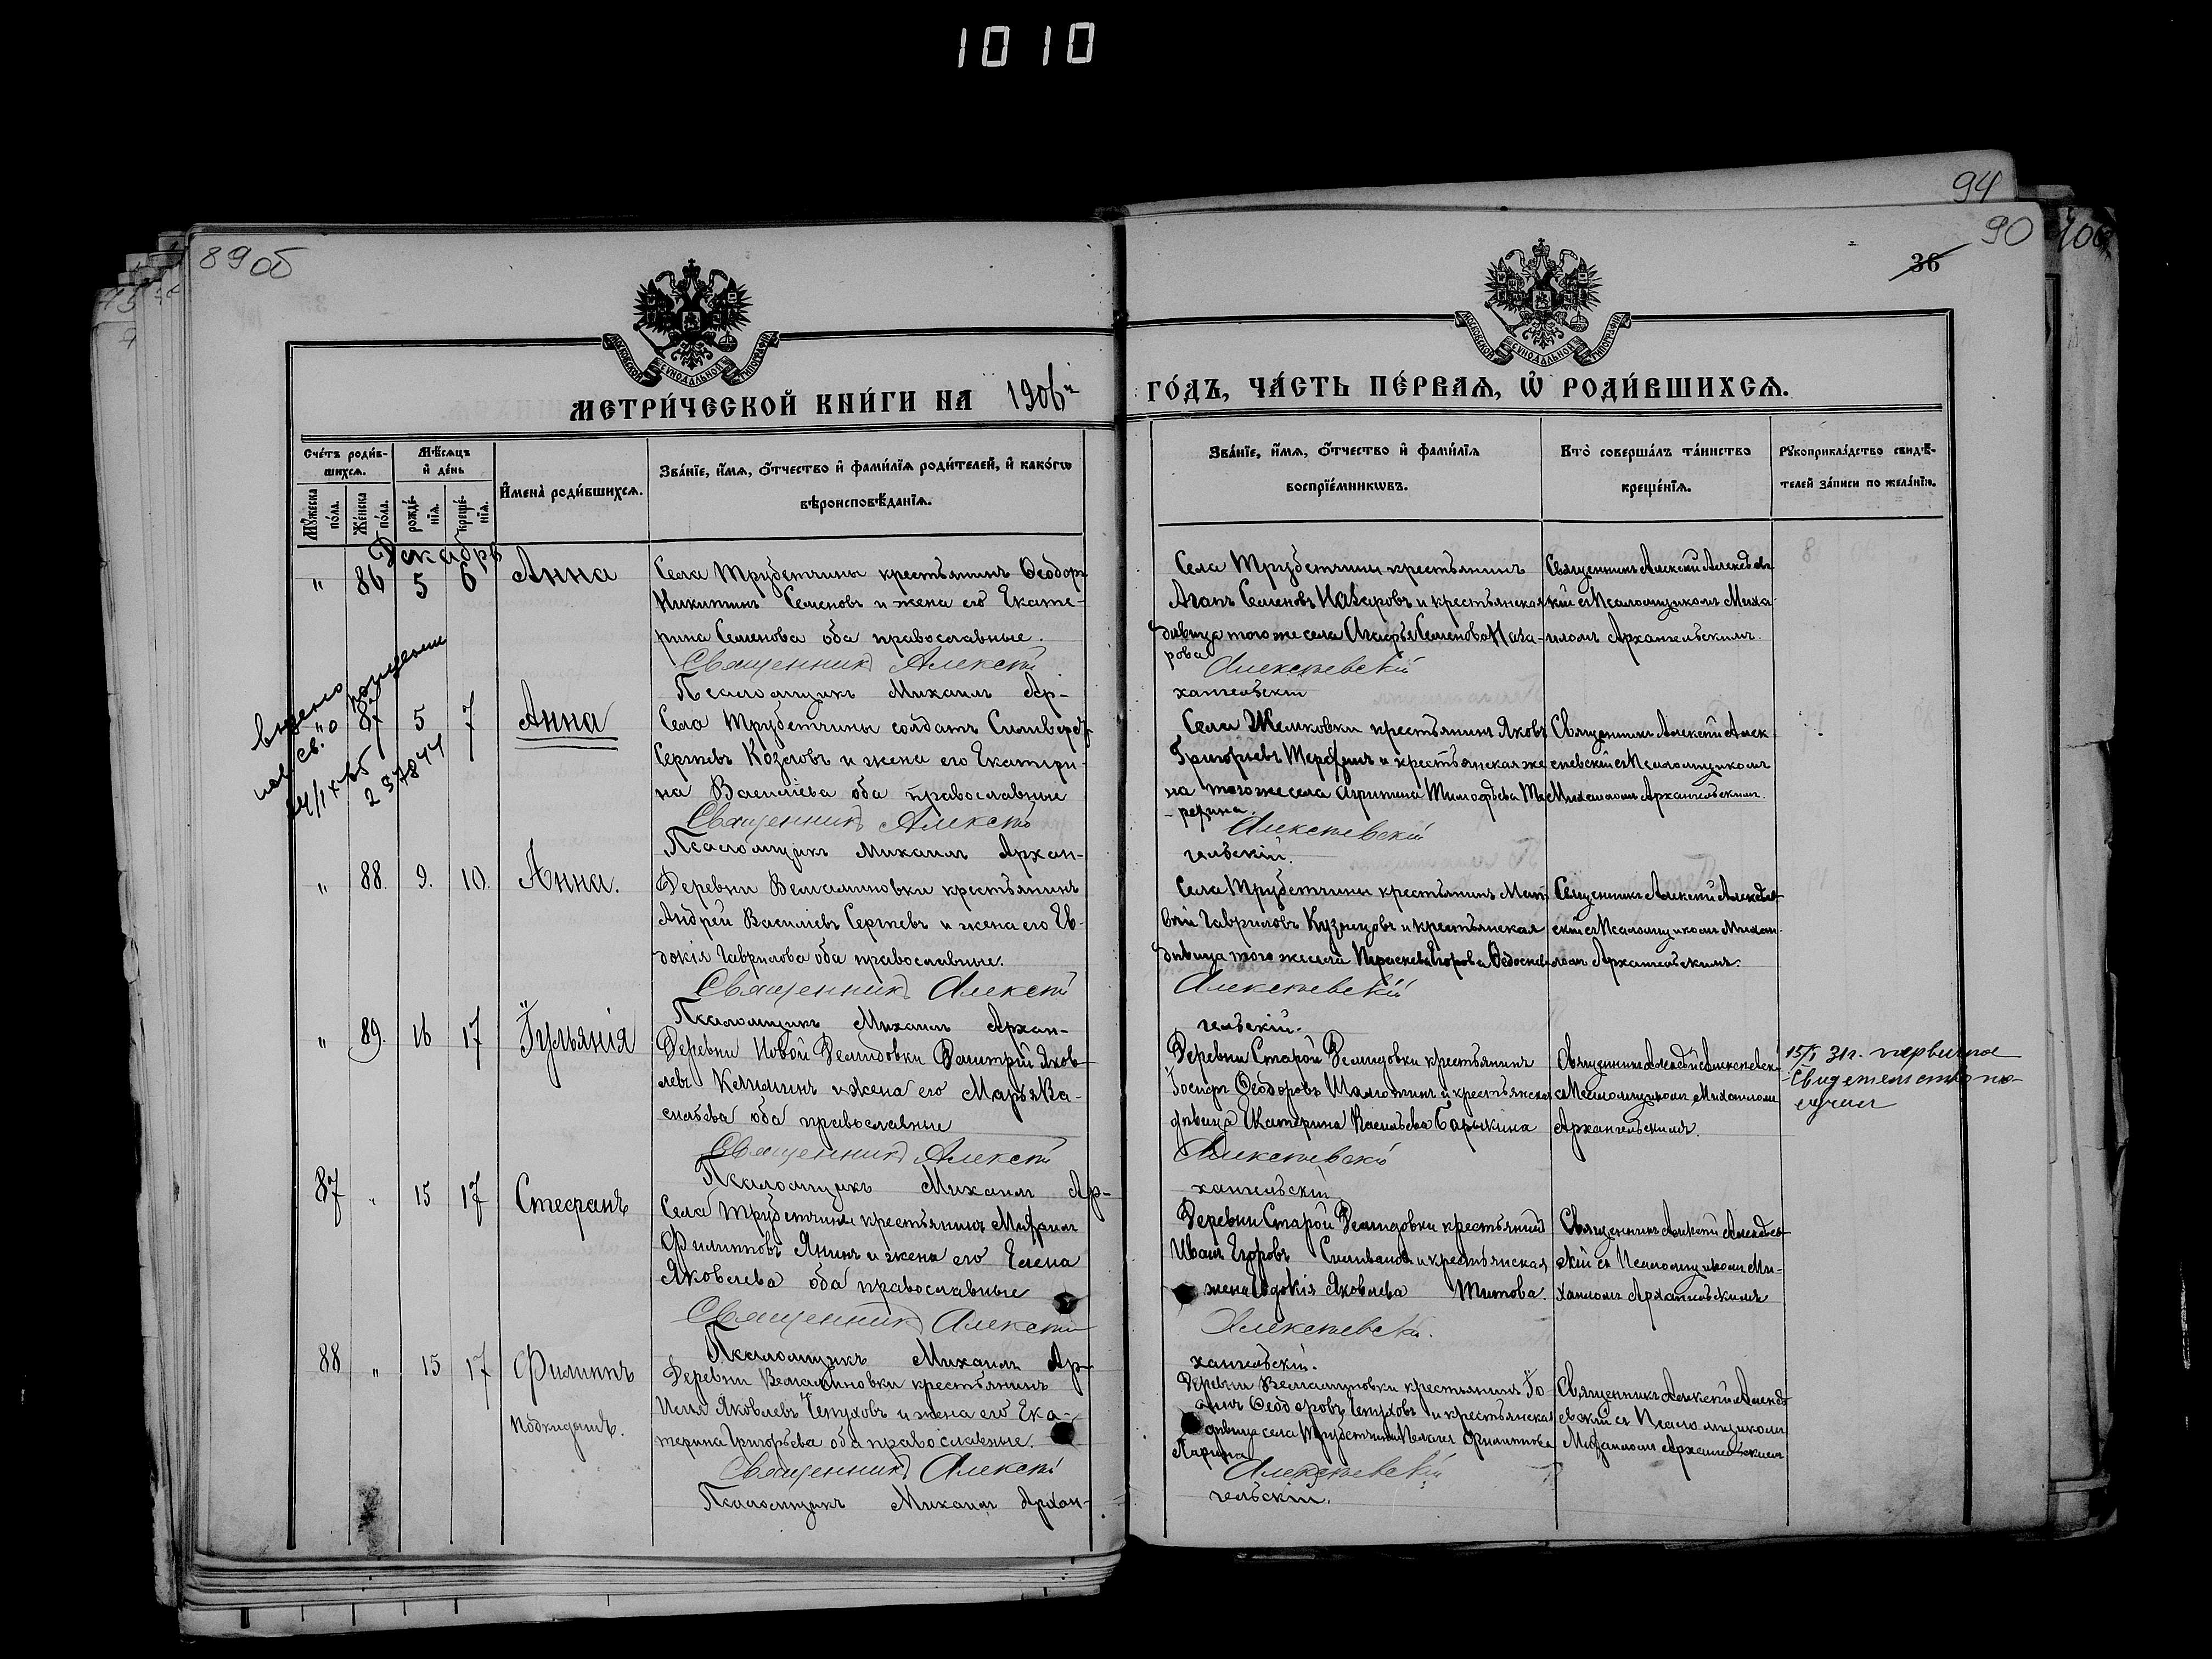 1010
94
89об
90
100
36
МОСКОВСКОЙ СѴНОДАЛЬНОЙ ТИПОГРАФІИ
МОСКОВСКОЙ СѴНОДАЛЬНОЙ ТИПОГРАФІИ
МЕТРИ́ЧЕСКОЙ КНИ́ГИ НА 1906й
ГО́ДЪ, ЧА́СТЬ ПЕ́РВАѦ, Ѡ҆ РОДИ́ВШИХСѦ.
Сче́тъ роди́в-
шихсѧ.
Мꙋ́жеска по́ла.
Же́нска по́ла.
Мѣ́сѧцъ
и҆ де́нь
рожде́-
нїѧ.
креще́-
нїѧ.
И҆мена̀ роди́вшихсѧ.
Зва́нїе, и҆́мѧ, ѻ҆́тчество и҆ фами́лїѧ роди́телей, и҆ како́гѡ
вѣроисповѣ́данїѧ.
Зва́нїе, и҆́мѧ, ѻ҆́тчество и҆ фами́лїѧ
воспрїе́мникѡвъ.
Кто̀ соверша́лъ та́инство
креще́нїѧ.
Рꙋкоприкла́дство свидѣ́-
телей за́писи по жела́нїю.
Декабрь
" 86 5 6 Анна
Села Трубетчины крестьянинъ Ѳеодоръ
Никитинъ Семеновъ и жена его Екате-
рина Семенова оба православные.
Священникъ Алексѣй
Псаломщикъ Михаилъ Ар-
Села Трубетчины крестьянинъ
Агапъ Семеновъ Назаровъ и крестьянская
дѣвица того же села Агафья Семенова Наза-
рова
Алексѣевскій
хангельскій
Священникъ Алексѣй Алексѣев-
кій съ Псаломщикомъ Миха-
иломъ Архангельскимъ.
" 87 5 7 Анна
237844
Села Трубетчины солдатъ Сильверстъ
Сергѣевъ Козловъ и жена его Екатери-
на Василіева оба православные
Священникъ Алексѣй
Псаломщикъ Михаилъ Архан-
Григорьевъ и крестьянская же
на того же села Агрипина Тимофѣева Те-
Алексѣевскій
гельскій.
Священникъ Алексѣй Алек-
сѣевскій съ Псаломщикомъ
Михаиломъ Архангельскимъ.
" 88. 9. 10. Анна.
Деревни Вельяминовки крестьянинъ
Андрей Василіевъ Сергѣевъ и жена его Ев-
докія Гаврилова оба православные.
Священникъ Алексѣй
Псаломщикъ Михаилъ Архан-
Села Трубетчины крестьянинъ Мат-
вѣй Гавриловъ Кузнецовъ и крестьянская
дѣвица того же села Параскева Егорова
Алексѣевскій
гельскій.
Священникъ Алексѣй Алексѣев-
скій съ Псаломщикомъ Миха-
иломъ Архангельскимъ.
" 89. 16 17 Іульянія
Деревни Новой Демидовки Димитрій Яков-
левъ и жена его Марья Ва-
сильева оба православные
Священникъ Алексѣй
Псаломщикъ Михаилъ Ар-
Деревни Старой Демидовки крестьянинъ
Іосифъ Ѳеодоровъ и крестьянская
дѣвица Екатерина Васильева Барыкина
Алексѣевскій
хангельскій
Священникъ Алексѣй Алексѣевскій
съ Псаломщикомъ Михаиломъ
Архангельскимъ.
15/I 31г. первичное
свидетельство по-
лучил
87 " 15 17 Стефанъ
Села Трубетчины крестьянинъ Михаилъ
Филипповъ Янинъ и жена его Елена
Яковлева оба православные
Священникъ Алексѣй
Псаломщикъ Михаилъ Ар-
Деревни Старой Демидовки крестьянинъ
Иванъ Егоровъ и крестьянская
жена Евдокія Яковлева Титова.
Алексѣевскій.
хангельскій.
Священникъ Алексѣй Алексѣев-
скій съ Псаломщикомъ Ми-
хаиломъ Архангельскимъ
88 " 15 17 Филиппъ
Подкидышъ.
Деревни Вельяминовки крестьянинъ
Илья Яковлевъ Чепуховъ и жена его Ека-
терина Григорьева оба православные.
Священникъ Алексѣй
Псаломщикъ Михаилъ Архан-
Деревни Вельяминовки крестьянинъ Іо-
аннъ Ѳеодоровъ Чепуховъ и крестьянская
дѣвица села Трубетчины Пелагея Филиппова
Алексѣевскій
гельскій.
Священникъ Алексѣй Алексѣ-
евскій съ Псаломщикомъ
Михаиломъ Архангельскимъ